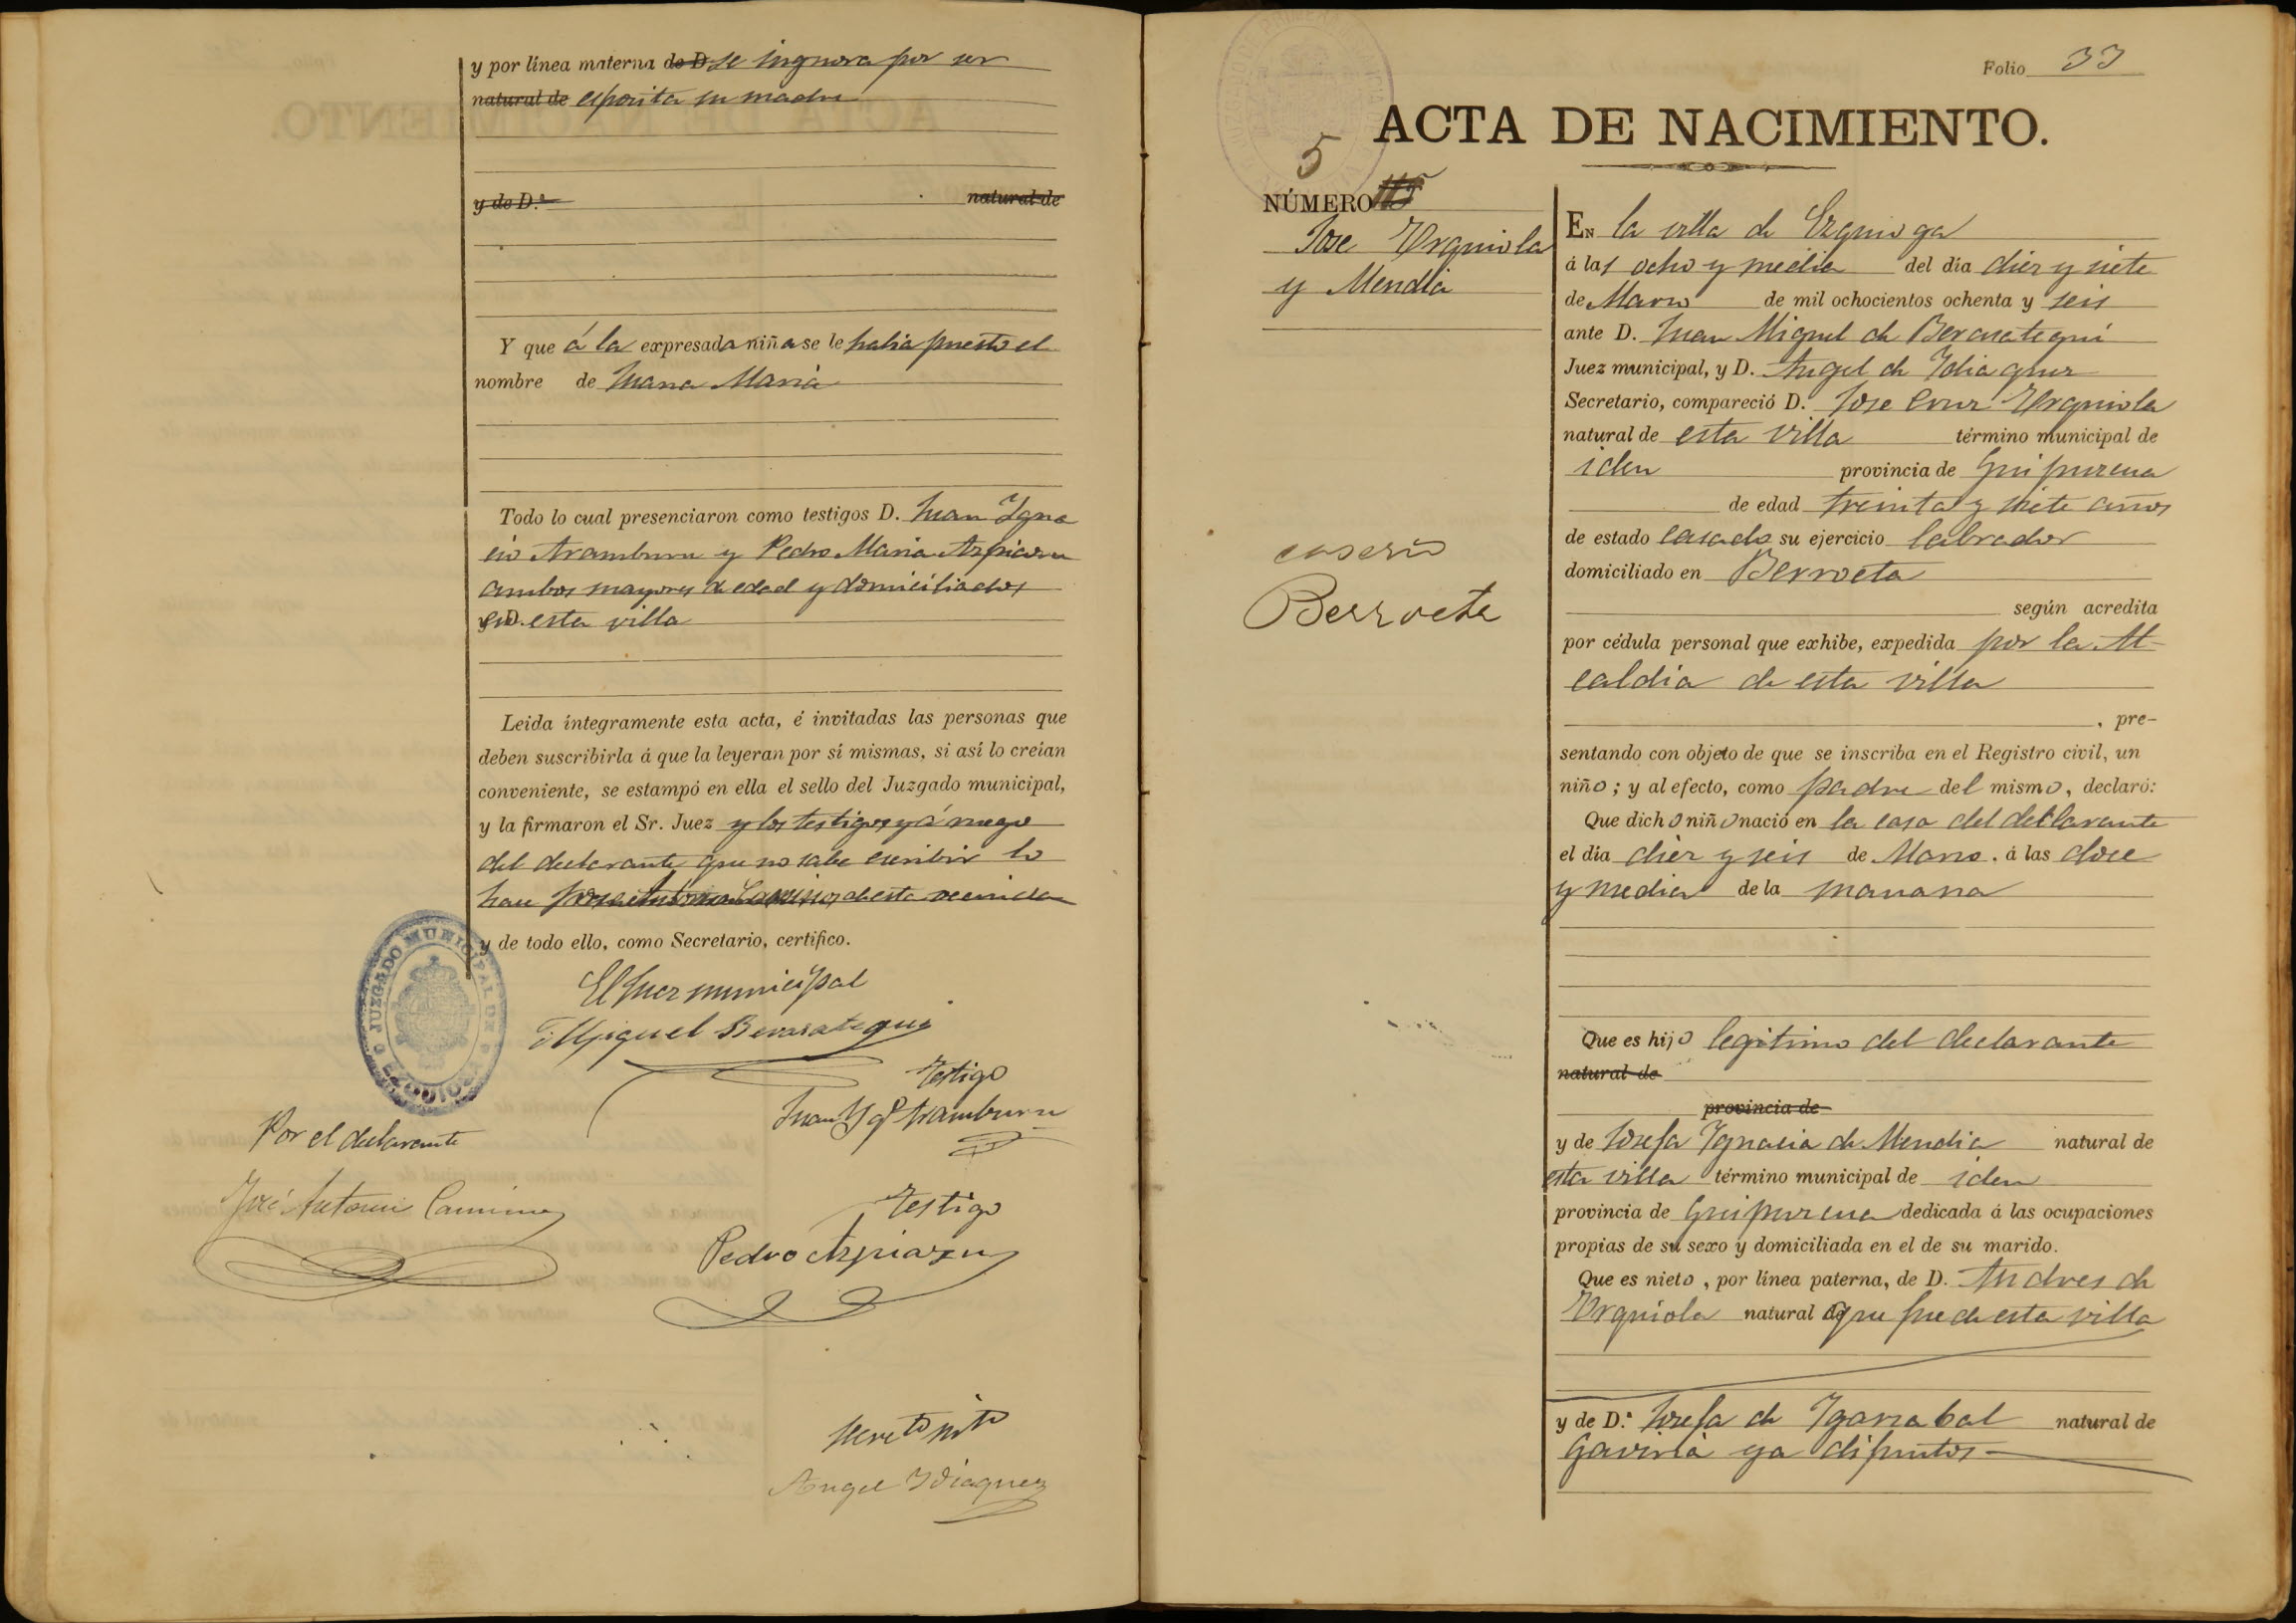 y por línea materna de D se ingnora por ser
natural de esposita su madre
y de D.ª natural de
Y que á la expresada niña se le habia puesto el
nombre de Juana Maria
Todo lo cual presenciaron como testigos D. Juan Ygna
cio Aramburu y Pedro Maria Azpiazu
ambos mayores de edad y domiciliados
y D. en esta villa
Leida íntegramente esta acta, é invitadas las personas que
deben suscribirla á que la leyeran por sí mismas, si así lo creían
conveniente, se estampó en ella el sello del Juzgado municipal,
y la firmaron el Sr. Juez y los testigos y á ruego
del declarante que no sabe escribir lo
hace Jose Antonio Camino, de esta vecindad
y de todo ello, como Secretario, certifico.
JUZGADO MUNICIPAL DE EZQUIOGA
El Juez municipal
J. Miguel Berasategui
Testigo
Juan Ygº Aramburu
Por el declarante
José Antonio Camino
Testigo
Pedro Azpiazu
Angel Ydiaquez
Folio 33
ACTA DE NACIMIENTO.
5
NÚMERO 115
Jose Urquiola
y Mendia
caserio
Berroeta
En la villa de Ezquioga
á las ocho y media del dia diez y siete
de Marzo de mil ochocientos ochenta y seis
ante D. Juan Miguel de Berasategui
Juez municipal, y D. Angel de Ydiaquez
Secretario, compareció D. Jose Cruz Urquiola
natural de esta villa término municipal de
iden provincia de Guipuzcua
de edad treinta y siete años
de estado casado su ejercicio labrador
domiciliado en Berroeta
según acredita
por cédula personal que exhibe, expedida por la Al-
caldia de esta villa
, pre-
sentando con objeto de que se inscriba en el Registro civil, un
niño; y al efecto, como padre del mismo, declaró:
Que dicho niño nació en la casa del declarante
el día diez y seis de Marzo. á las doce
y media de la manana
Que es hijo legitimo del declarante
natural de
provincia de
y de Josefa Ygnacia de Mendia natural de
esta villa término municipal de iden
provincia de Guipuzcua dedicada á las ocupaciones
propias de su sexo y domiciliada en el de su marido.
Que es nieto, por línea paterna, de D. Andres de
Urquiola natural de que fue de esta villa
y de D.ª Josefa de Ygarzabal natural de
Gaviria ya difuntos